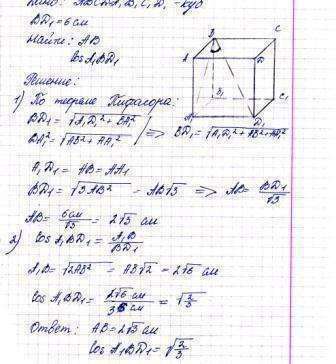 Дано: ABCDA₁B₁C₁D₁ - куб
BD₁ = 6 см
Найти: AB
cos A₁BD₁
Решение:
1) По теореме Пифагора:
BD₁ = √A₁D₁² + BA₁²
BA₁² = √AB² + AA₁² => BD₁ = √A₁D₁² + AB² + AA₁²
A₁D₁ = AB = AA₁
BD₁ = √3AB² = AB√3 => AB = BD₁/√3
AB = 6 см/√3 = 2√3 см
2) cos A₁BD₁ = A₁B/BD₁
A₁B = √2AB² = AB√2 = 2√6 см
cos A₁BD₁ = 2√6 см/36 см = √2/3
Ответ: AB = 2√3 см
cos A₁BD₁ = √2/3
B C
A D
B₁ C₁
A₁ D₁